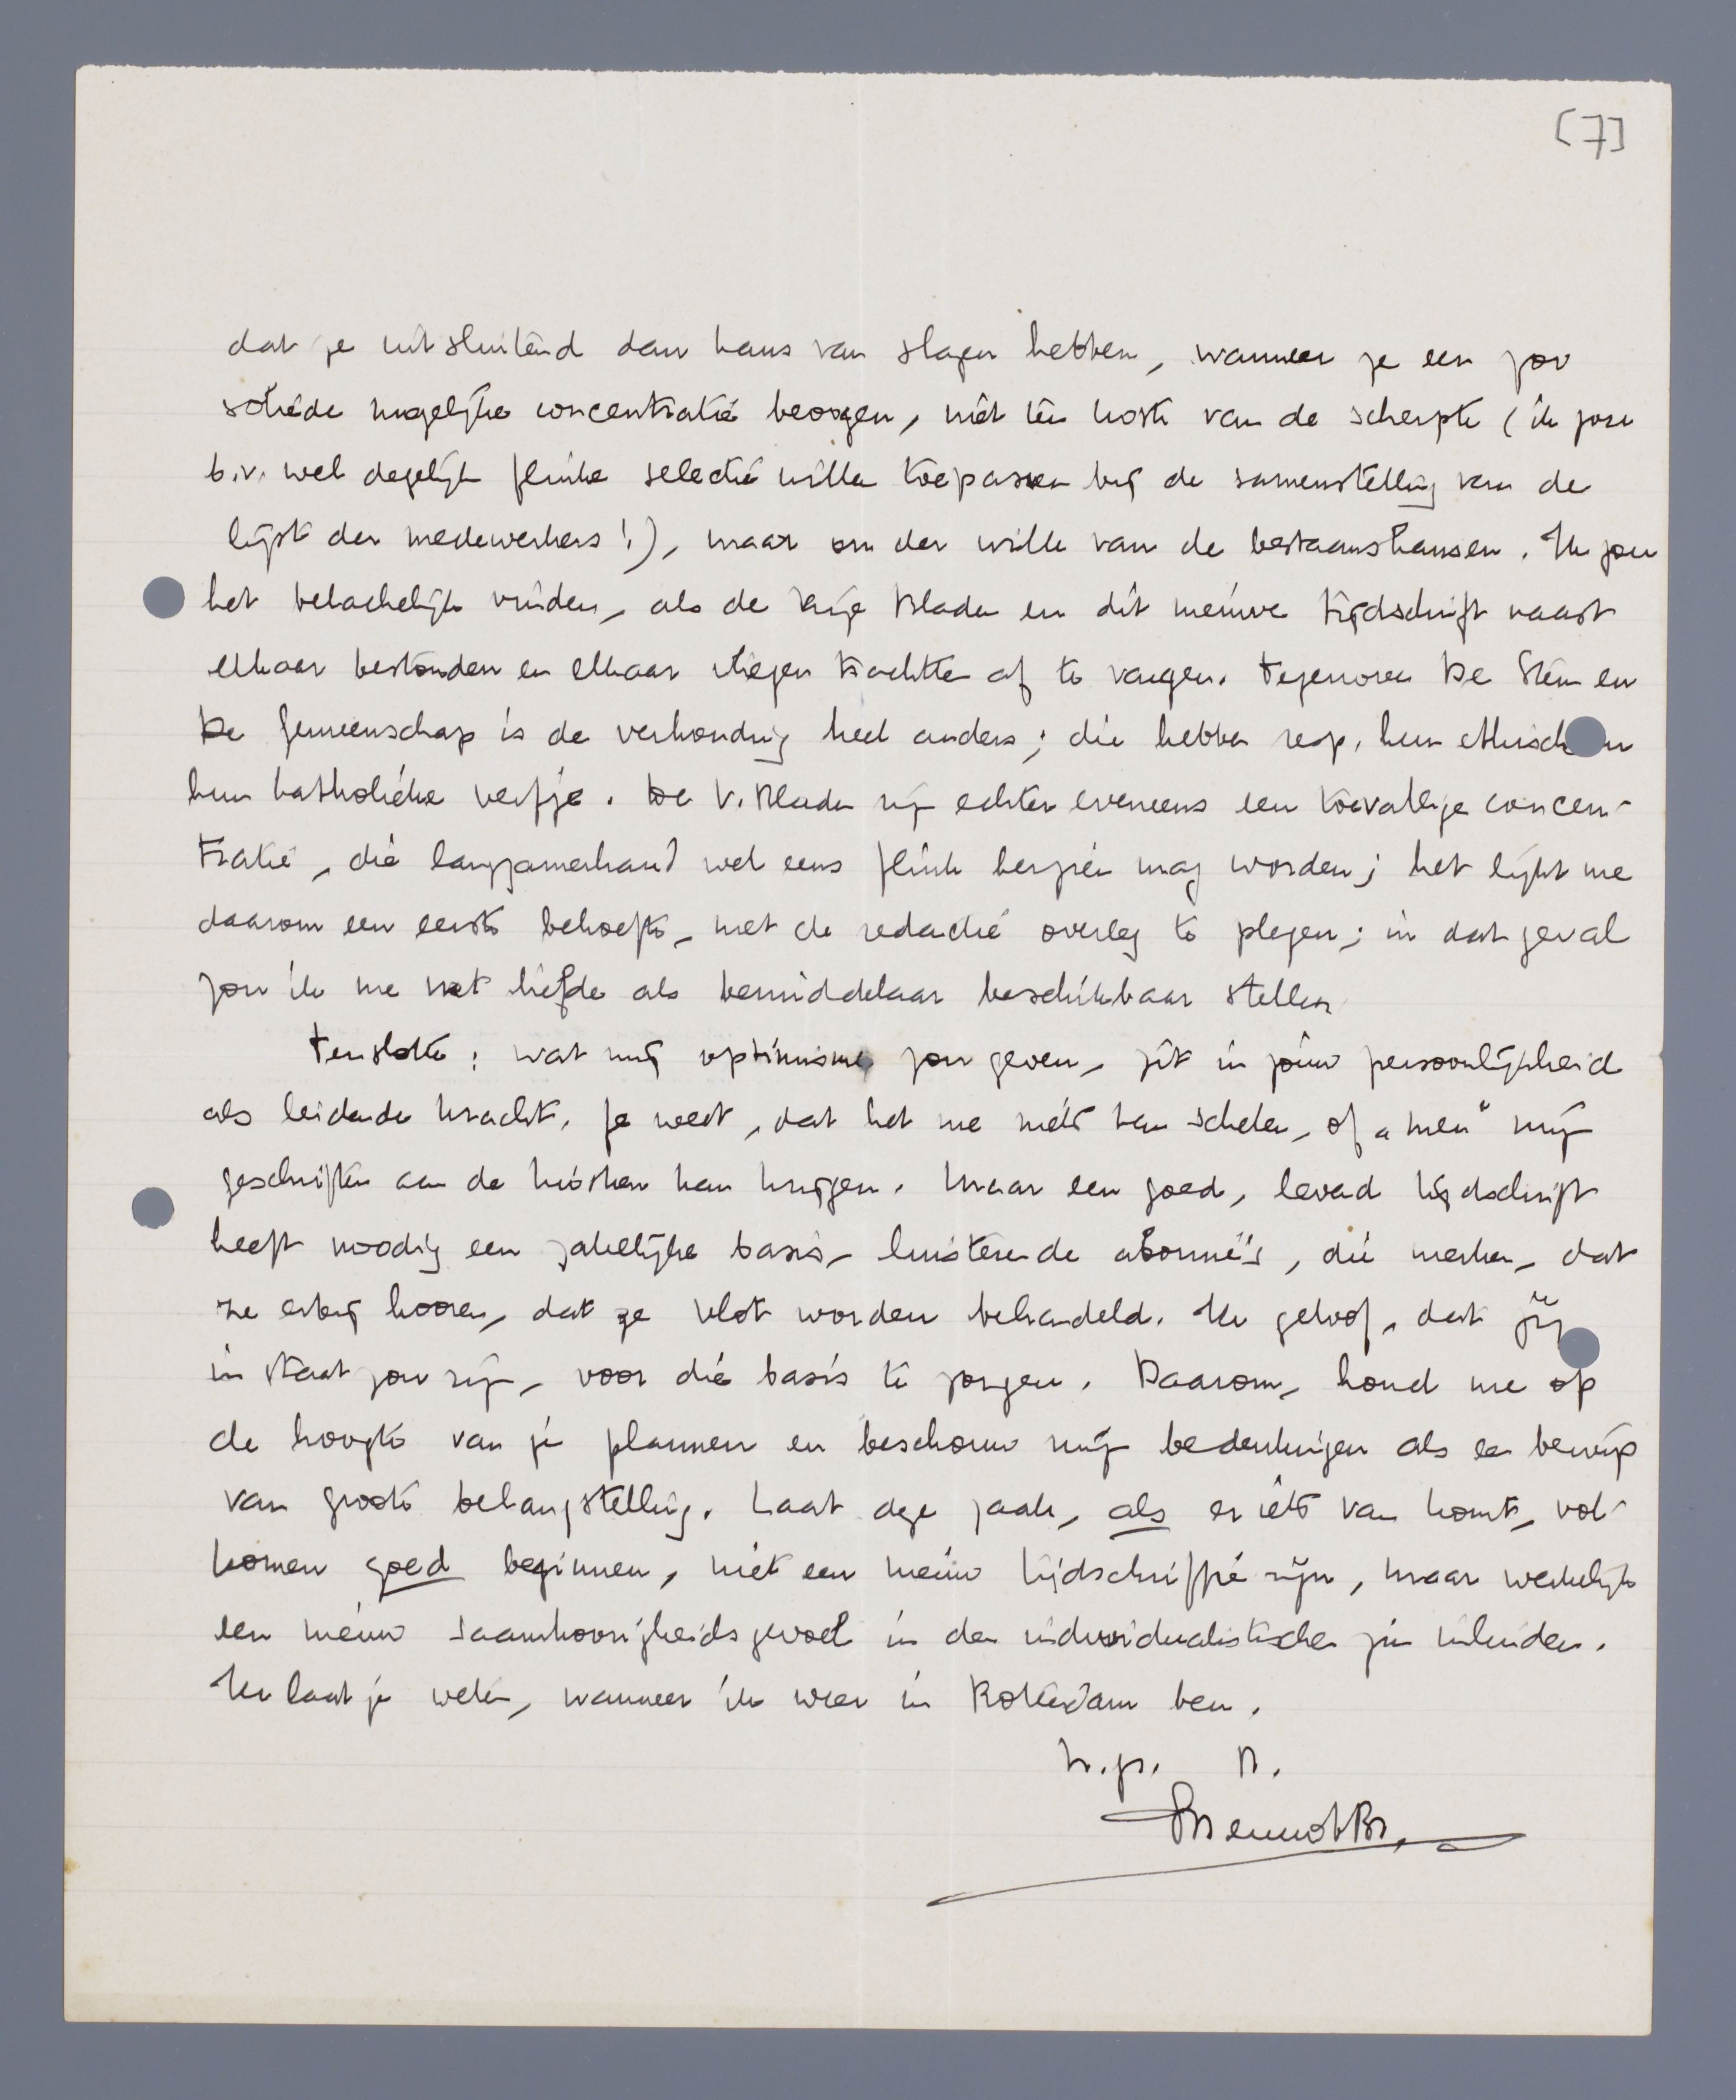 [7]
dat je uitsluitend dan kans van slagen hebben, wanneer je een zoo
soliede mogelijke concentratie beoogen, niet ten koste van de scherpte (ik zou
b.v. wel degelijk flinke selectie willen toepassen bij de samenstelling van de
lijst der medewerkers!), maar om der wille van de bestaanskansen. Ik zou
het belachelijk vinden, als de Vrije Bladen en dit nieuwe tijdschrift naast
elkaar bestonden en elkaar vliegen trachtten af te vangen. Tegenover De Stem en
De Gemeenschap is de verhouding heel anders; die hebben resp. hun ethisch en
hun katholieke verfje. De V. Bladen zijn echter eveneens een toevallige concen-
tratie, die langzamerhand wel eens flink herzien mag worden; het lijkt me
daarom een eerste behoefte, met de redactie overleg te plegen; in dat geval
zou ik me met liefde als bemiddelaar beschikbaar stellen
Tenslotte: wat mij optimisme zou geven, zit in jouw persoonlijkheid
als leidende kracht. Je weet, dat het me niets kan schelen, of „men" mijn
geschriften aan de kiosken kan krijgen. Maar een goed, levend tijdschrift
heeft noodig een zakelijke basis, luisterende abonné's, die merken, dat
ze erbij hooren, dat ze vlot worden behandeld. Ik geloof, dat jij
in staat zou zijn, voor die basis te zorgen. Daarom, houd me op
de hoogte van je plannen en beschouw mijn bedenkingen als een bewijs
van groote belangstelling. Laat deze zaak, als er iets van komt, vol-
komen goed beginnen, niet een nieuw tijdschriftje zijn, maar werkelijk
een nieuw saamhoorigheidsgevoel in den individualistischen zin inluiden.
Ik laat je weten, wanneer ik weer in Rotterdam ben.
h.gr. 
Menno t.Br.